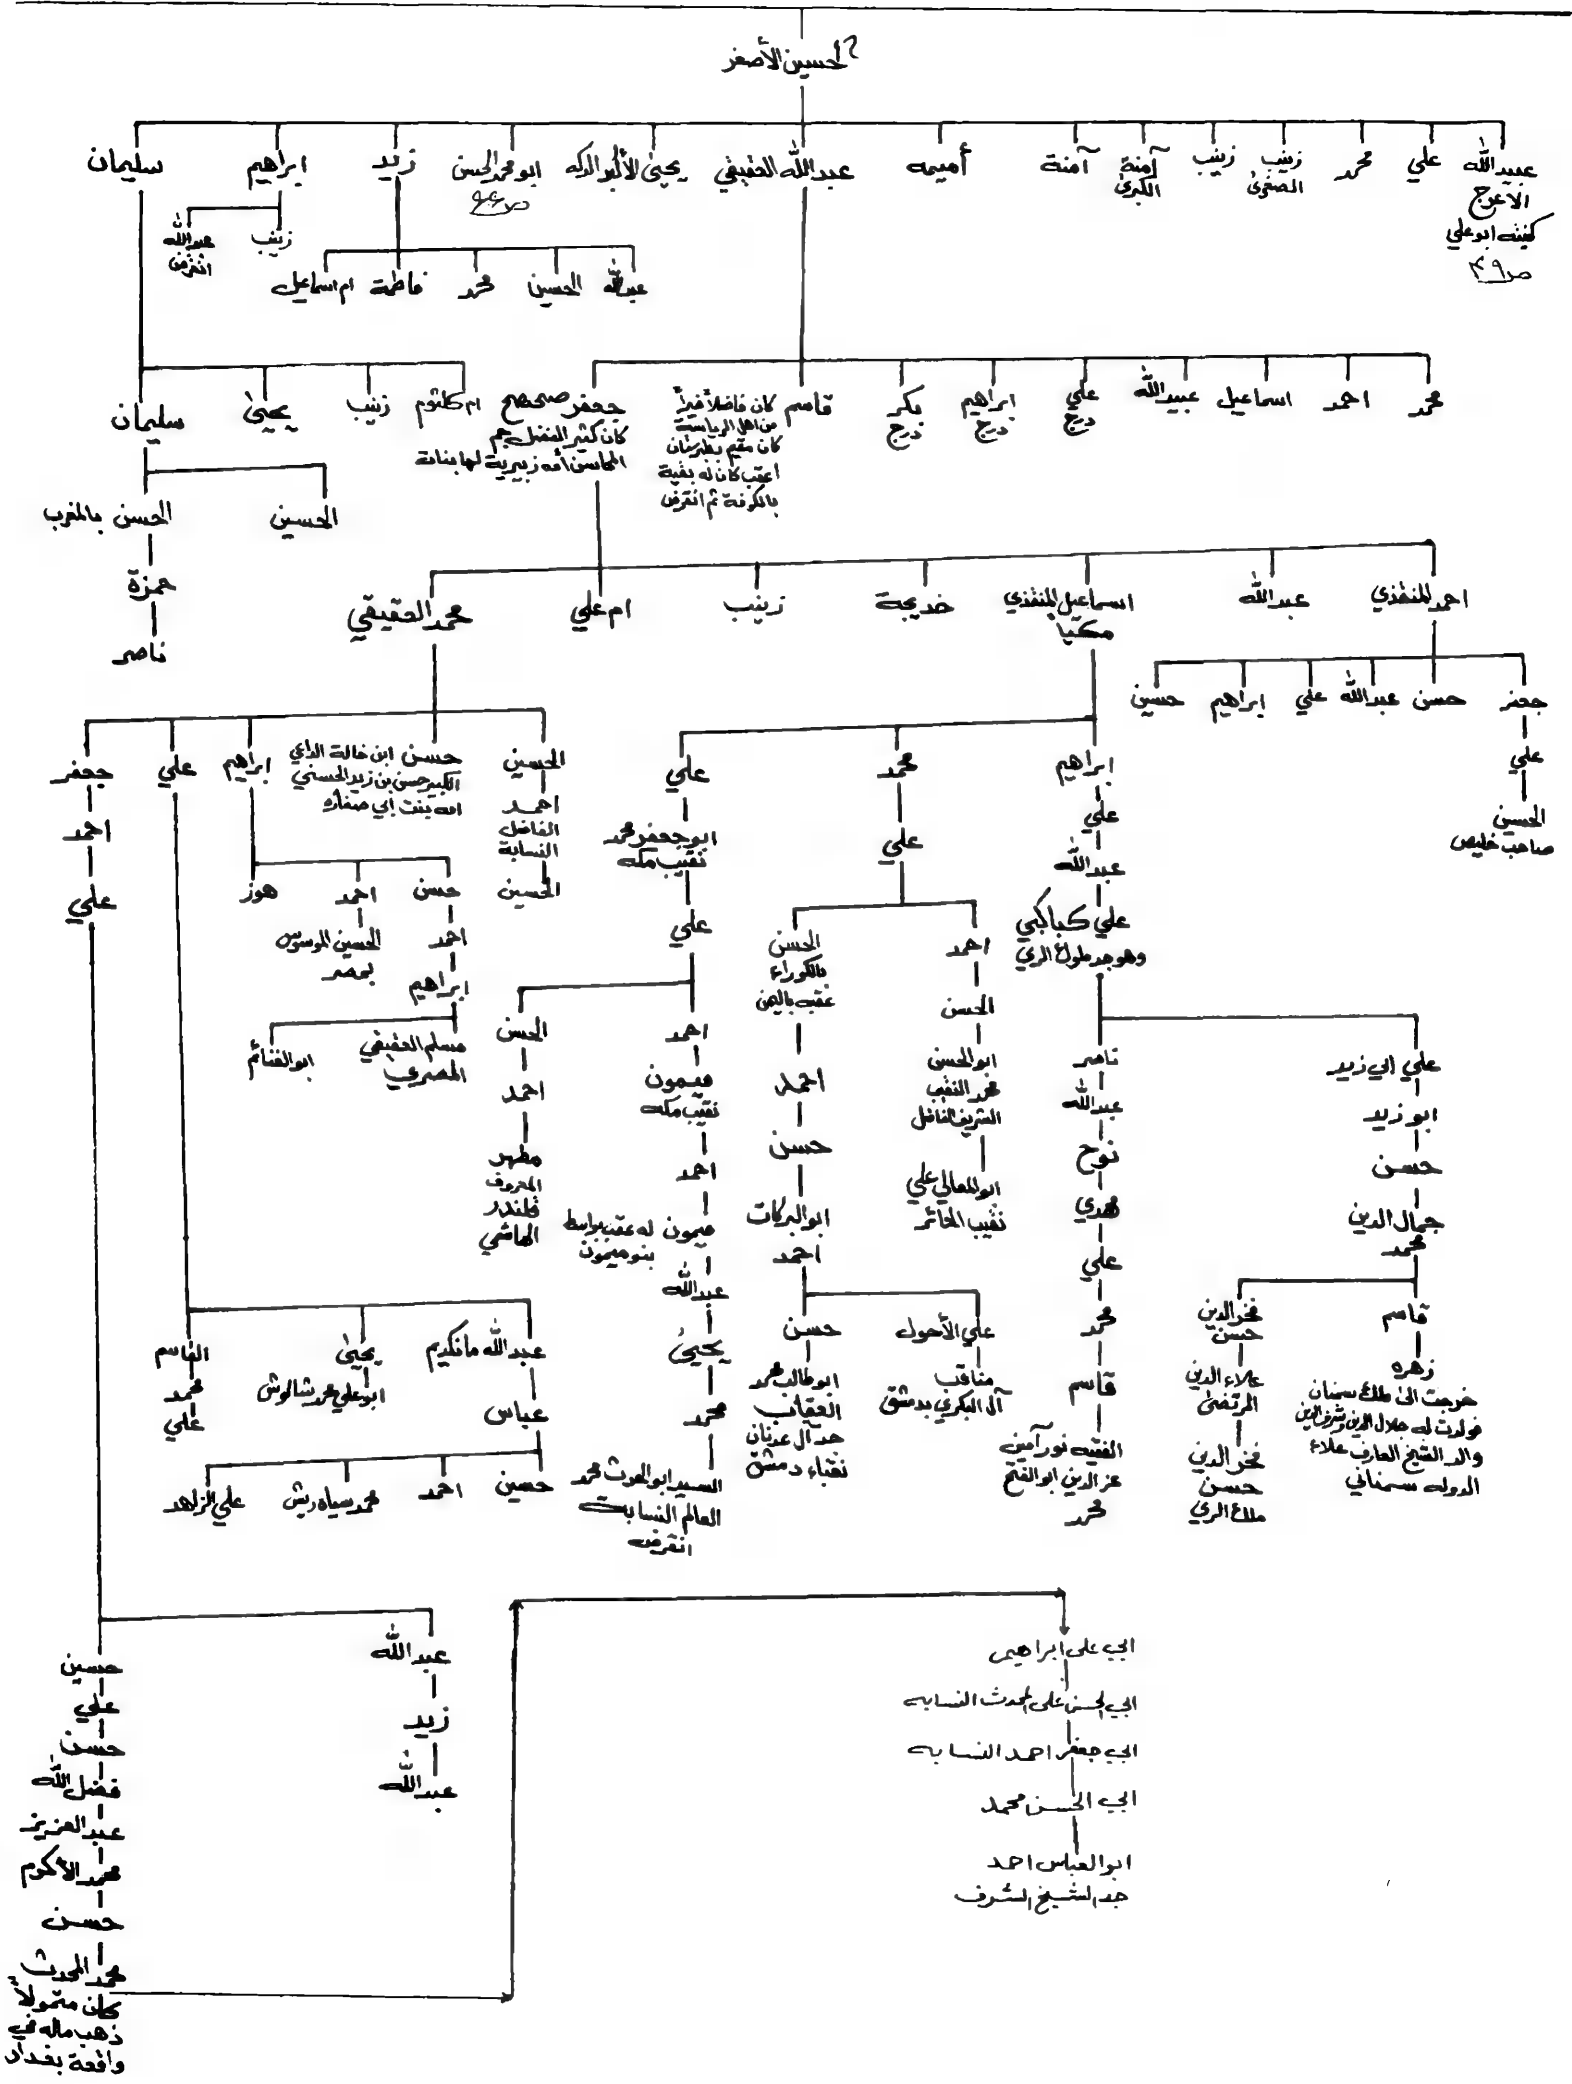 الحسين الأصغر
عبيدالله علي محمد زينب زينب آمنة آمنة أميمه عبدالله العقيقي يحيى الأكبر الدكه ابو محمد الحسن زيد ابراهيم سليمان
الأعرج الصغرى الكبرى
كنيته ابو علي
ص٤٩
زينب عبدالله
انقرض
عبدالله الحسين محمد فاطمة ام اسماعيل
محمد احمد اسماعيل عبيدالله علي ابراهيم بكر قاسم جعفر صحصح
درج درج درج
كان فاضلاً خيراً
من اهل الرياسة
كان مقيم بطبرستان
اعقب كان له بقية
بالكوفة ثم انقرض
كان كثير الفضل جم
المحاسن أمه زبيرية لها بنانة
ام كلثوم زينب يحيى سليمان
الحسين الحسن بالمغرب
حمزة
ناصر
احمد المنقذي عبدالله اسماعيل المنقذي خديجة زينب ام علي محمد العقيقي
مكياً
جعفر حسن عبدالله علي ابراهيم حسين
علي
الحسين
صاحب خليص
ابراهيم محمد علي
علي
عبدالله
علي كباكبي
وهو جد ملوك الري
علي ابي زيد
ابو زيد
حسن
جمال الدين
محمد
قاسم
زهره
خرجت الى ملك سمنان
فولدت له جلال الدين وشرف الدين
والد الشيخ العارف علاء
الدوله سمناني
فخر الدين
حسن
علاء الدين
المرتضى
فخر الدين
حسن
ملك الري
ناصر
عبدالله
نوح
مهدي
علي
محمد
قاسم
الفقيه نور آمين
عز الدين ابو الفتح
محمد
علي
احمد
الحسن
ابو الحسن
محمد النقيب
الشريف الفاضل
ابو المعالي علي
نقيب الحائر
الحسن
بالكوراء
عقبه باليمن
احمد
حسن
ابو البركات
احمد
علي الأحول
مناقب
آل البكري بدمشق
حسن
ابو طالب محمد
العقاب
جد آل عدنان
نقباء دمشق
ابو جعفر محمد
نقيب مكه
علي
احمد
ميمون
نقيب مكه
احمد
ميمون له عقب بواسط
بنو ميمون
عبدالله
يحيى
محمد
السيد ابو الحرث محمد
العالم النسابة
انقرض
الحسن
احمد
مطهر
المعروف
قلندر
الهاشمي
الحسين حسن ابن خالة الداعي ابراهيم علي جعفر
الكبير حسن بن زيد الحسني
امه بنت ابي صفاره
احمد
الفاضل
النسابة
الحسين
حسن احمد هوز
احمد
ابراهيم
الحسين الموسوس
بمصر
مسلم العقيقي ابو الغنائم
المصري
عبدالله مانكيم يحيى القاسم
ابو علي محمد شالوش
محمد
علي
عباس
حسين احمد محمد سياه ريش علي الزاهد
احمد
علي
عبدالله
زيد
عبدالله
حسين
علي
حسن
فضل الله
عبد العزيز
محمد الأكرم
حسن
محمد المحدث
كان متمولاً
ذهب ماله في
واقعة بغداد
ابي علي ابراهيم
ابي الحسن علي المحدث النسابه
ابي جعفر احمد النسابه
ابي الحسن محمد
ابو العباس احمد
جد الشيخ الشرف